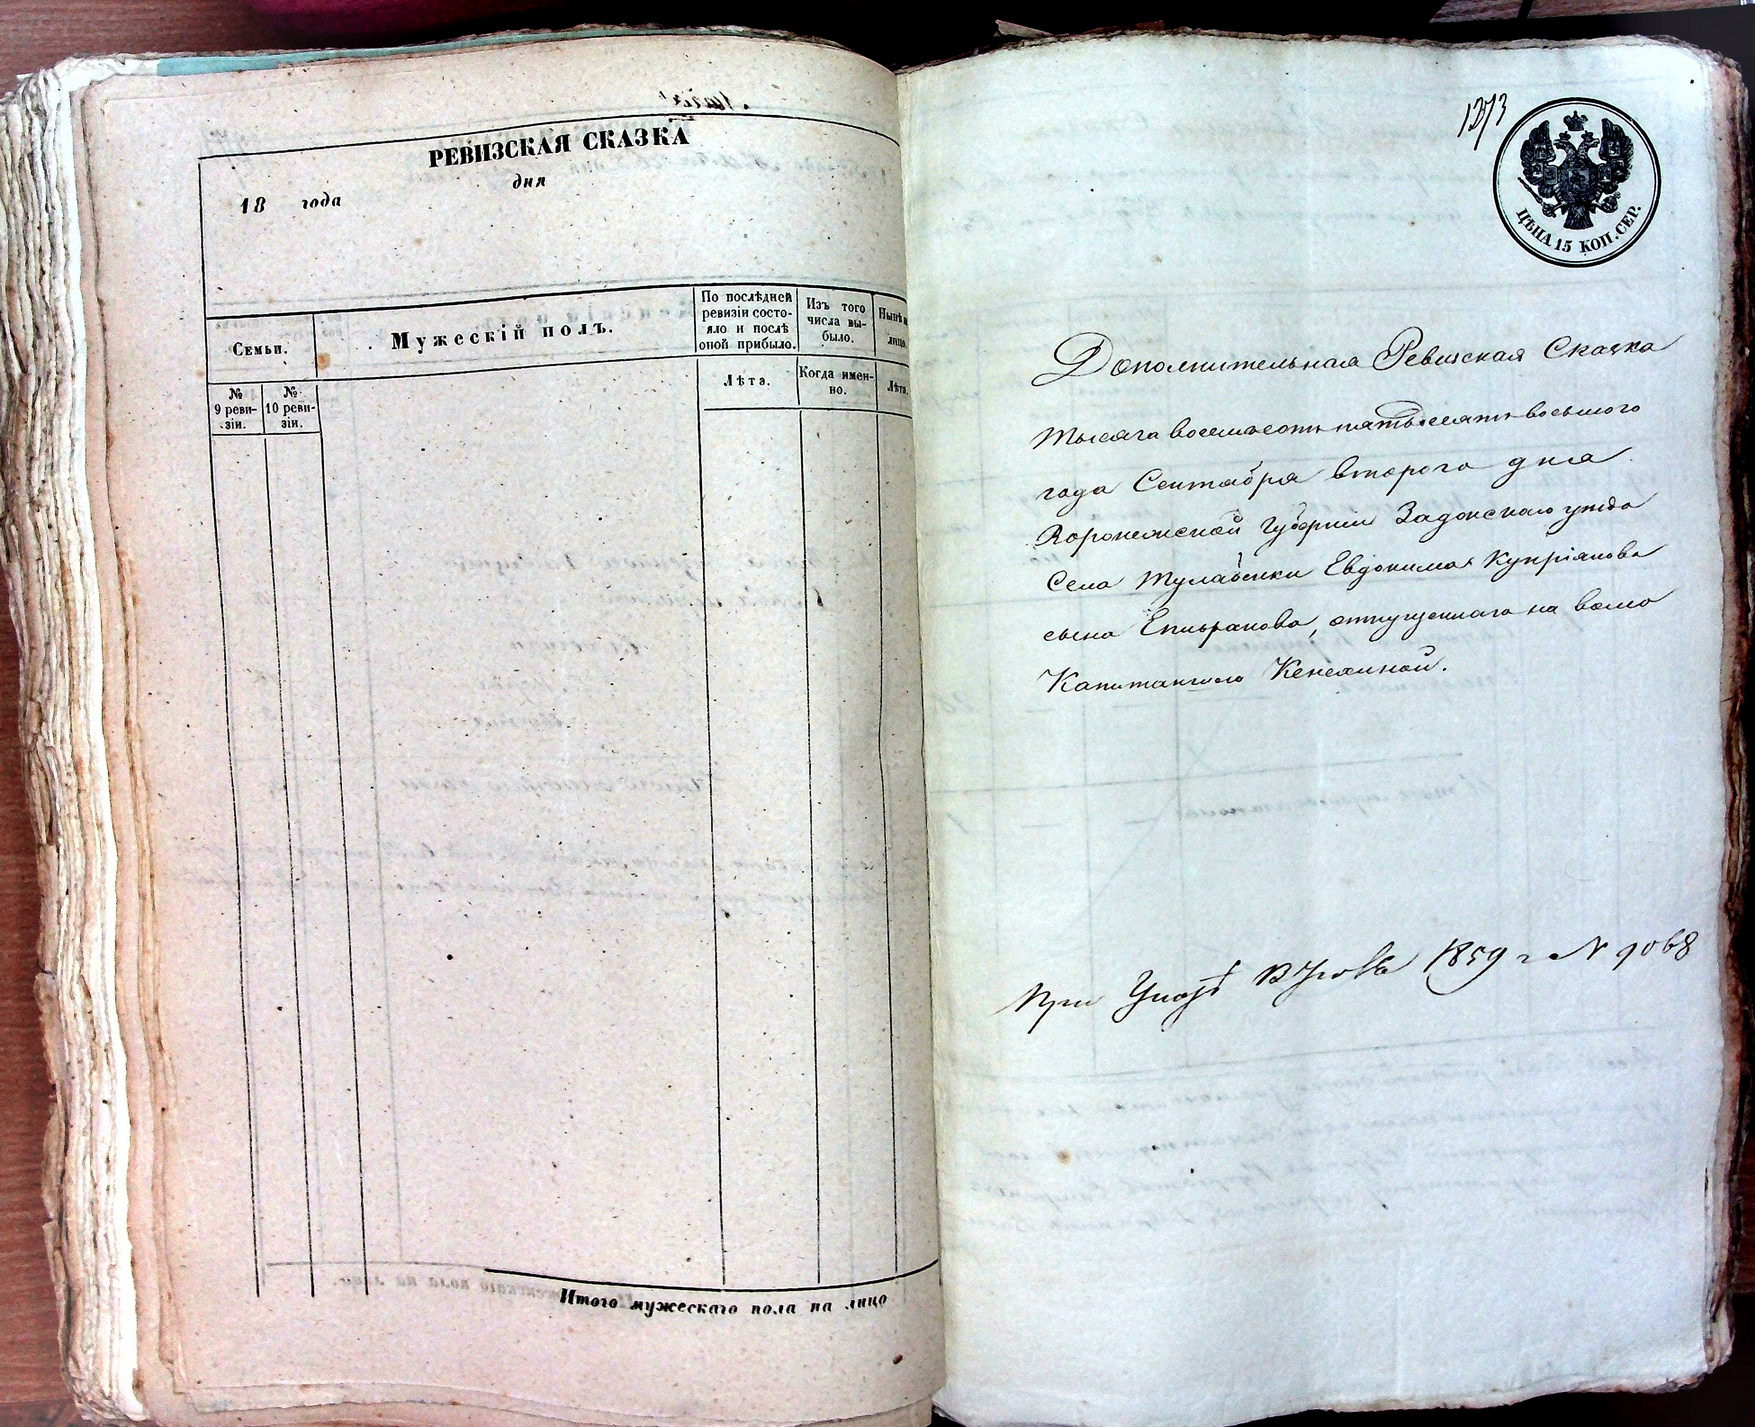 РЕВИЗСКАЯ СКАЗКА
дня
18 года
Семьи.
Мужескій полъ.
По послѣдней ревизіи состояло и послѣ оной прибыло.
Изъ того числа выбыло.
Нынѣ
лицо
№ 9 ревизіи.
№ 10 ревизіи.
Лѣта.
Когда именно.
Лѣта.
Итого мужескаго пола на лицо
1273
ЦѢНА 15 КОП. СЕР.
Дополнительная Ревизская Сказка
тысяча восемьсотъ пятьдесятъ восьмого
года Сентября второго дня
Воронежской Губерніи Задонскаго уѣзда
Села Тулабьевки Евдокима Купріянова
сына Епифанова, отпущеннаго на волю
Капитаншею
При Указѣ 1859 г № 9068